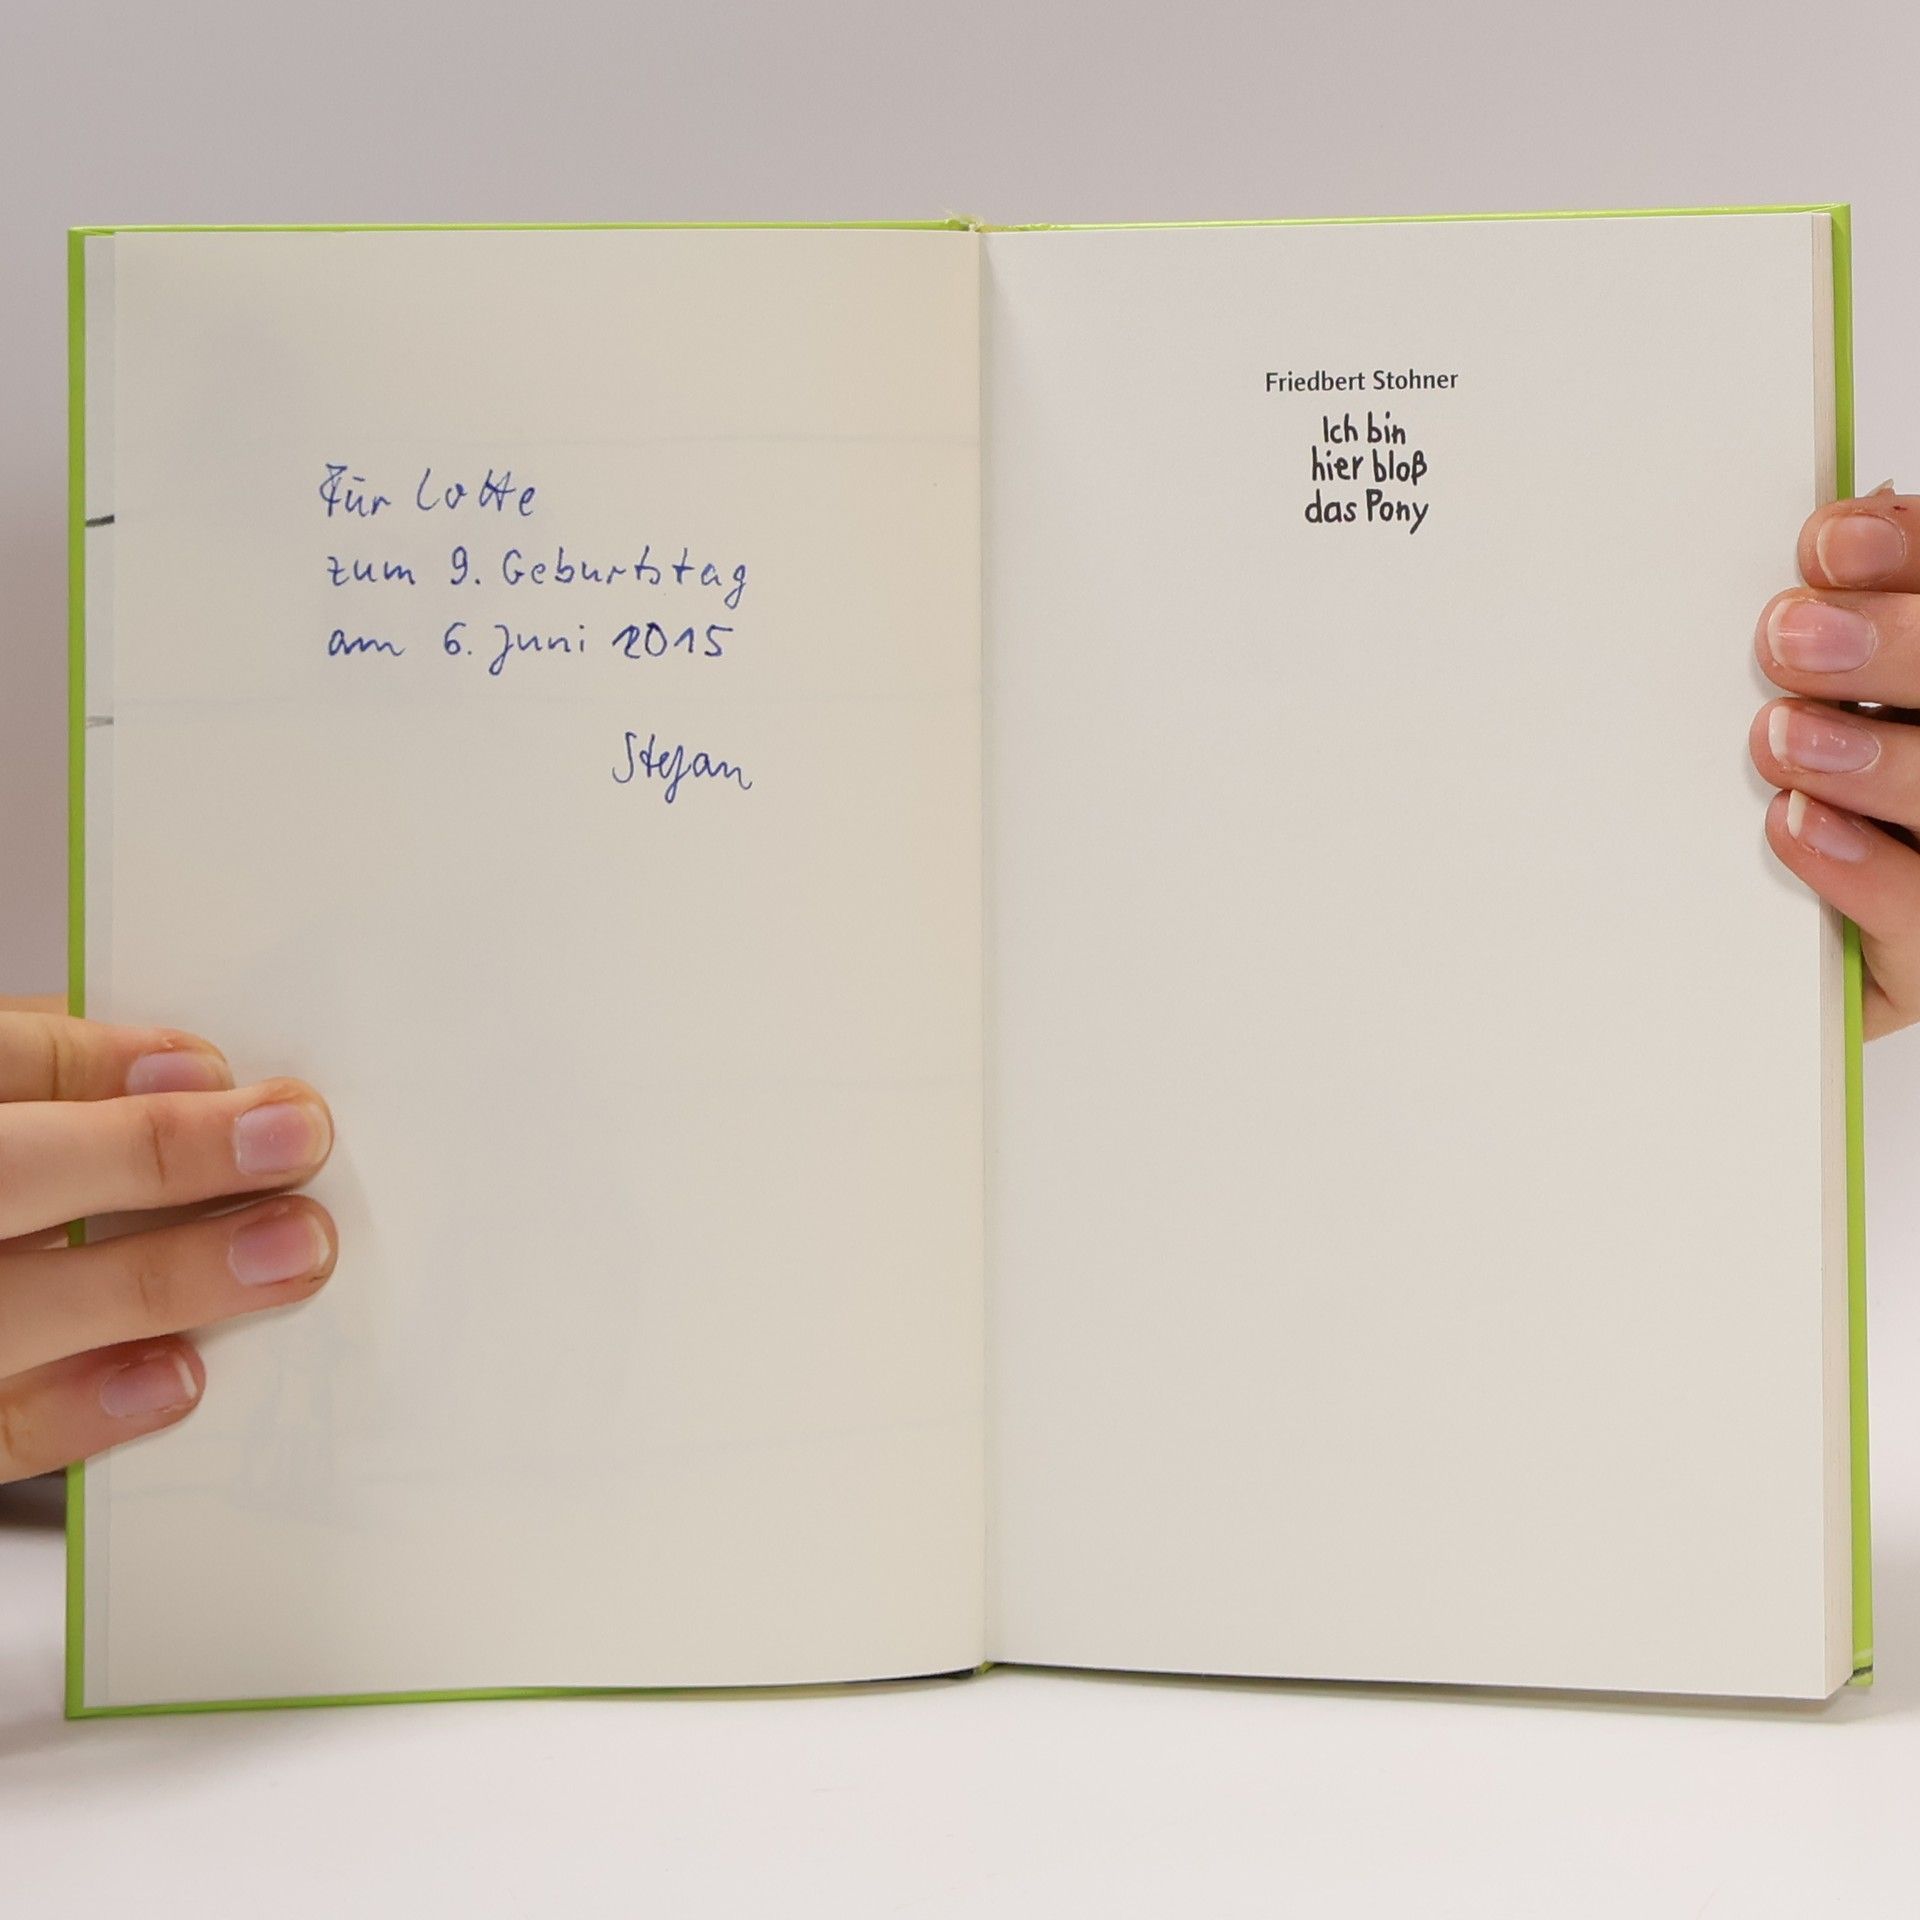 Für Lotte
zum 9. Geburtstag
am 6. Juni 2015
Stefan
Friedbert Stohner
Ich bin
hier bloß
das Pony